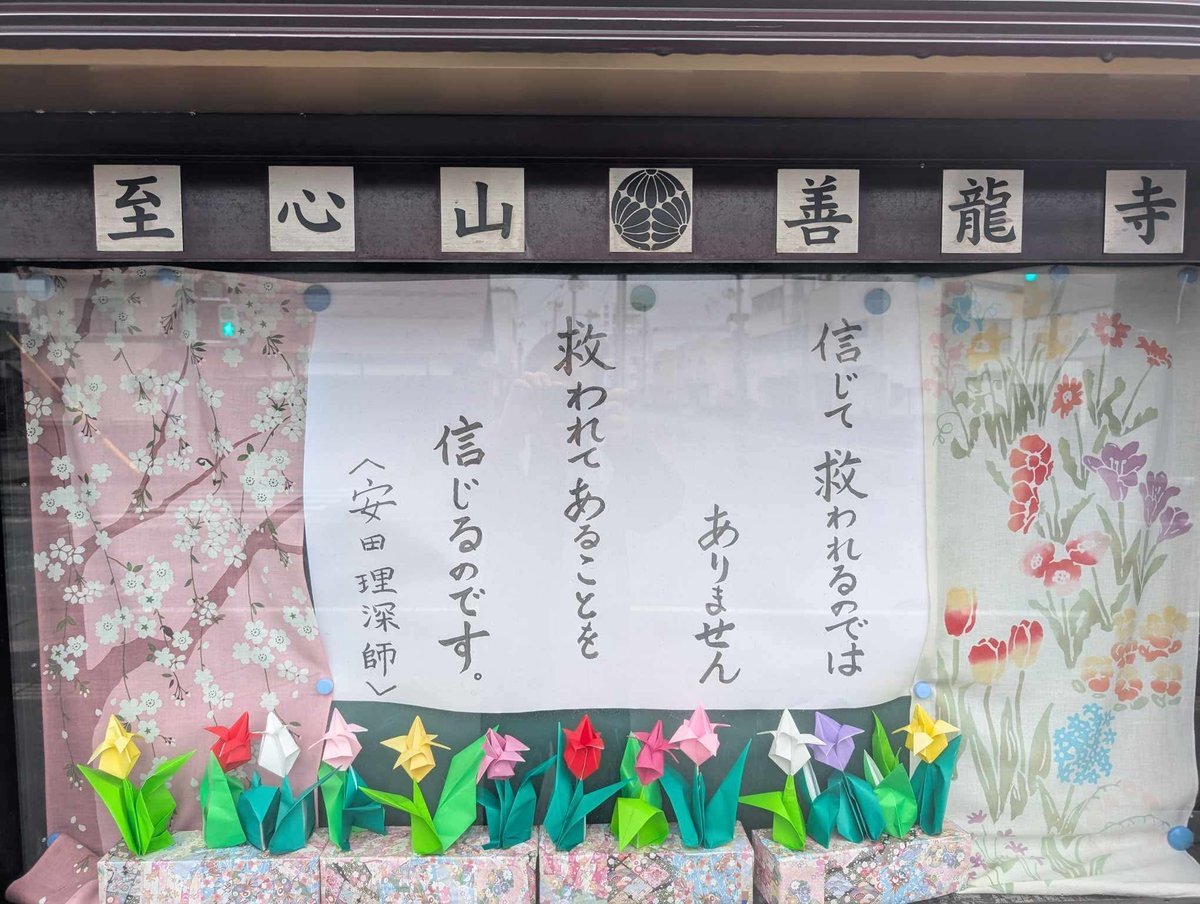 至心山 善龍寺
信じて救われるのでは
ありません
救われてあることを
信じるのです。
〈安田理深師〉